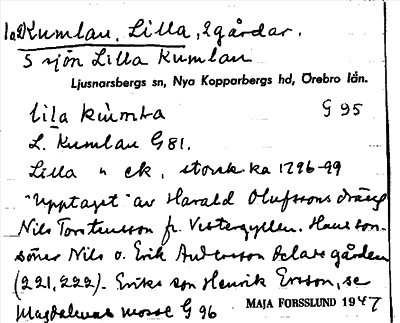 Kumlan, Lilla, 2 gårdar.
S sjön Lilla Kumlan
Ljusnarsbergs sn, Nya Kopparbergs hd, Örebro län.
lila kùmla G 95
L. Kumlan G 81.
Lilla " ek, storsk.ka 1796-99
"Upptaget" av Harald Olufssons dräng
Nils Torstensson fr. Vestergyllen. Hans son-
söner Nils o. Erik Andersson delade gården
(221, 222). Eriks son Henrik Ersson, se
Magdalenas mosse G 96 MAJA FORSSLUND 1947